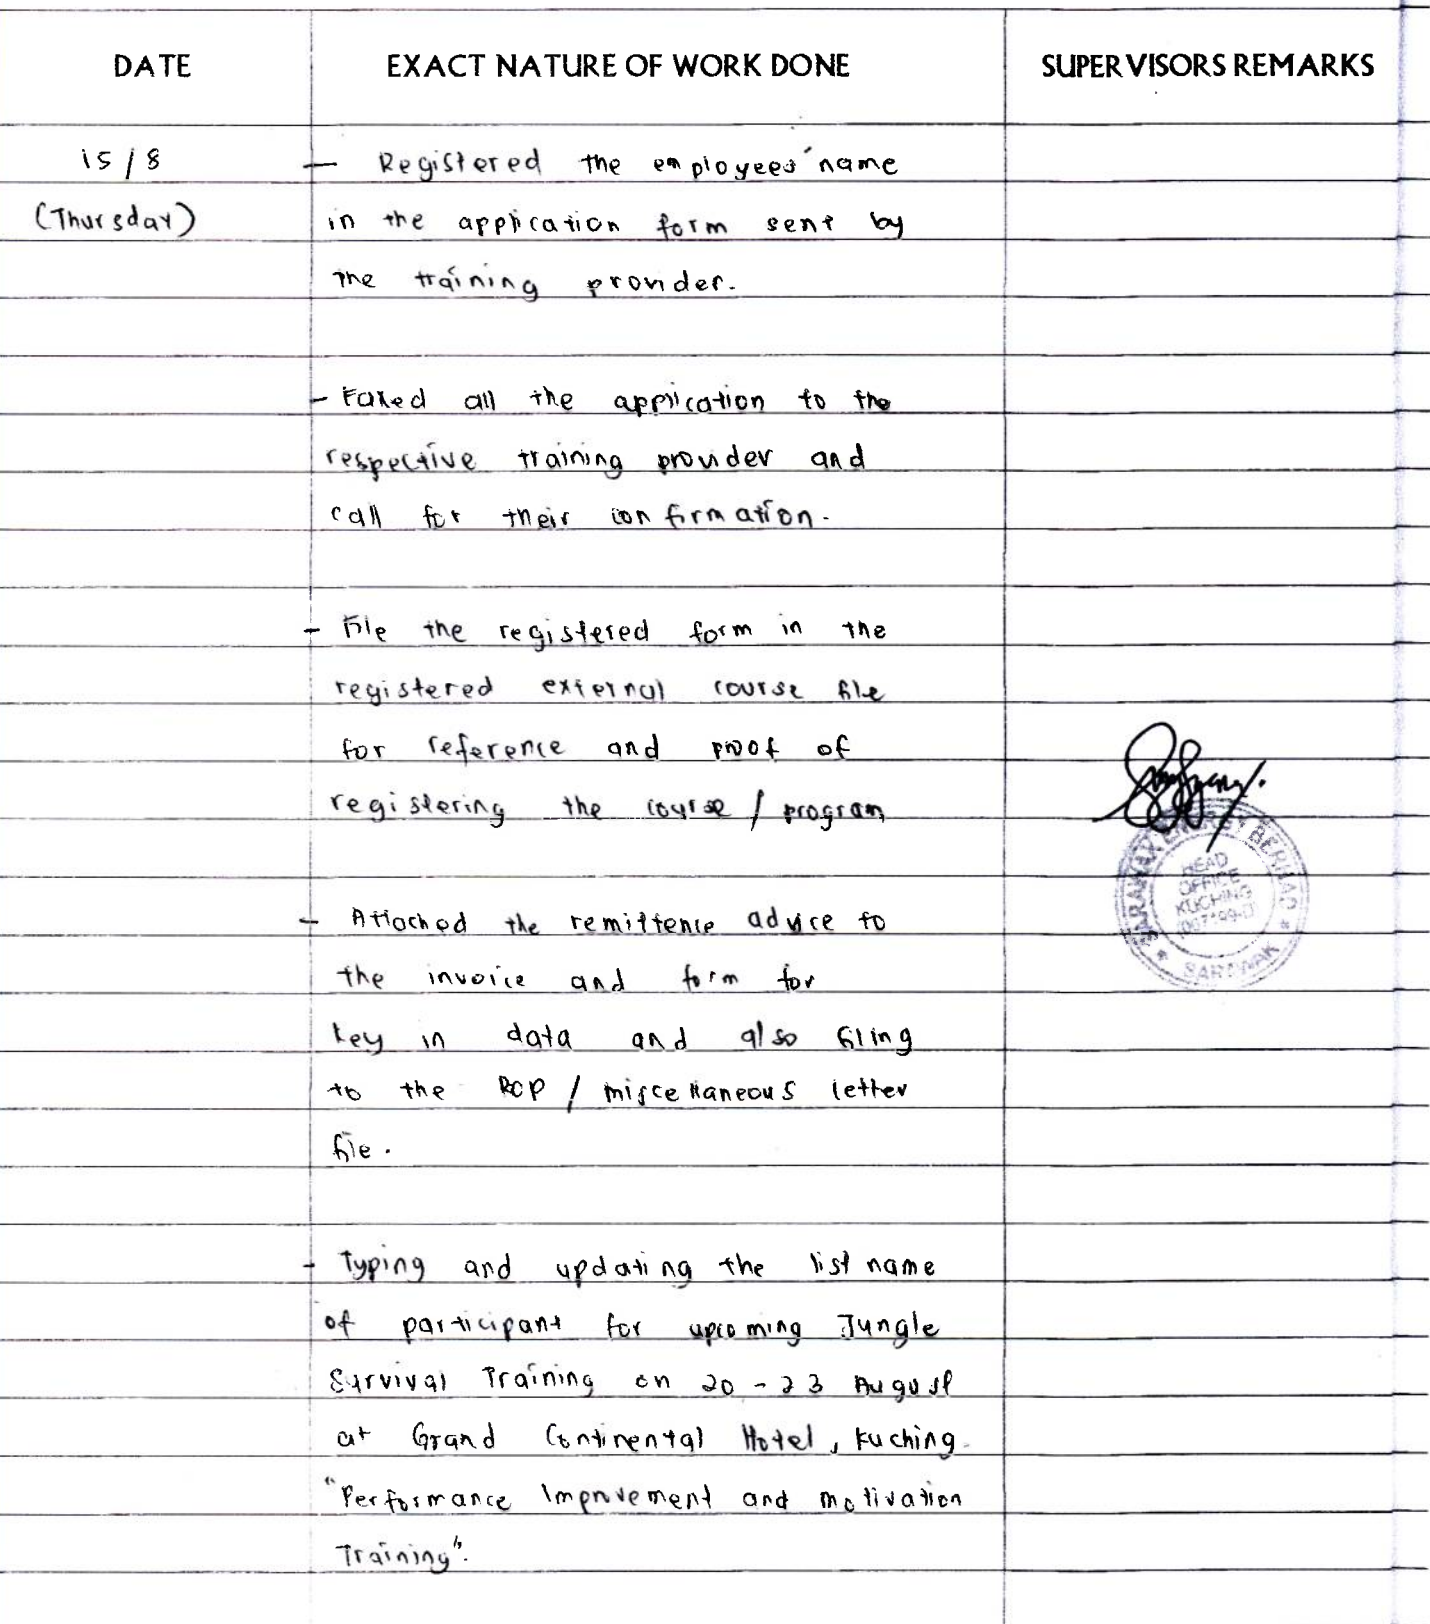 DATE EXACT NATURE OF WORK DONE SUPERVISORS REMARKS
15/8 — Registered the employees' name
(Thursday) in the application form sent by
the training provider.
- Faxed all the application to the
respective training provider and
call for their confirmation.
- File the registered form in the
registered external course file
for reference and proof of
registering the course / program
- Attached the remittence advice to
the invoice and form for
key in data and also filing
to the RCP / miscellaneous letter
file.
- Typing and updating the list name
of participant for upcoming Jungle
Survival Training on 20 - 23 August
at Grand Continental Hotel, Kuching.
"Performance Improvement and motivation
Training".
SARAWAK ENERGY BERHAD
HEAD
OFFICE
KUCHING
* SARAWAK *